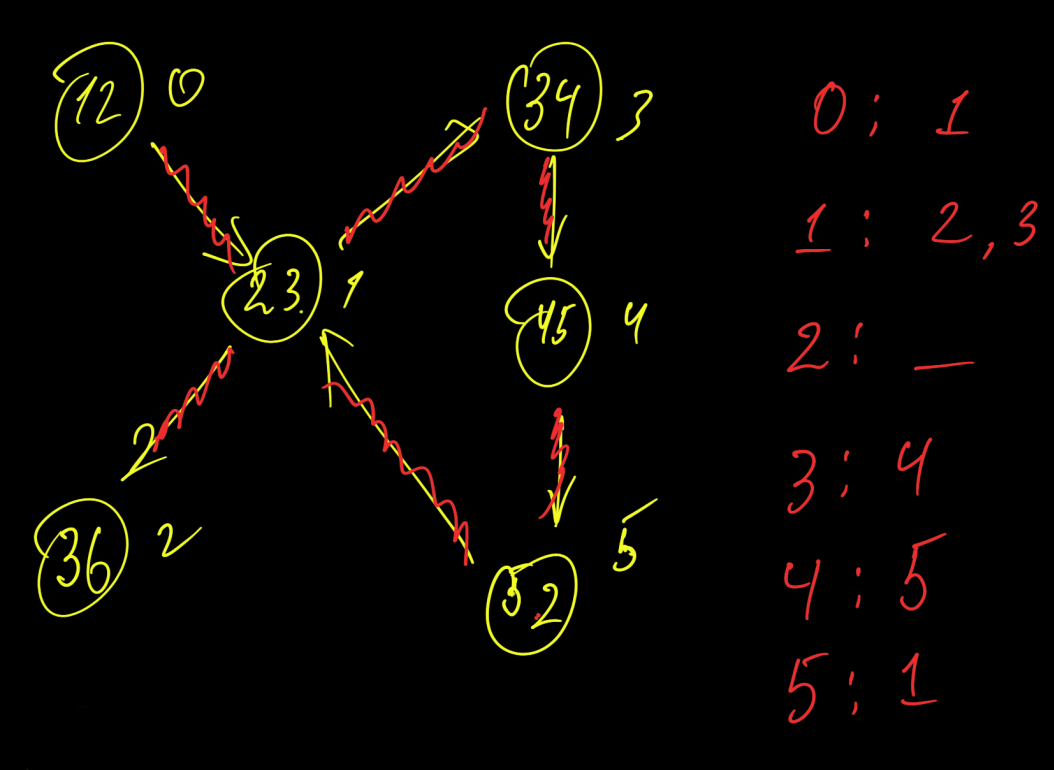 12 0
34 3
23 1
45 4
36 2
52 5
0: 1
1: 2,3
2: _
3: 4
4: 5
5: 1